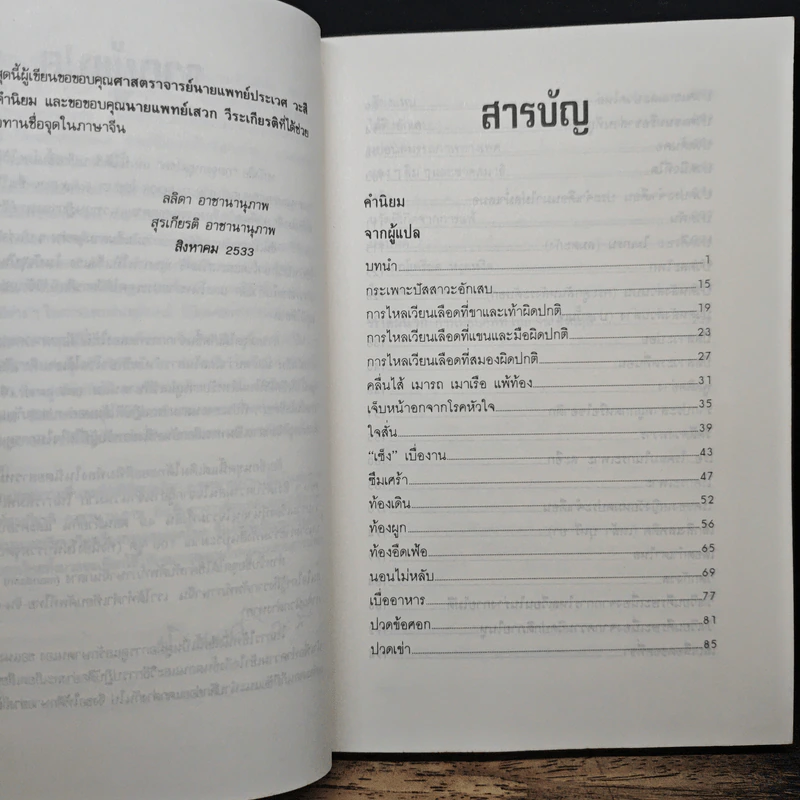 สุดนี้ผู้เขียนขอขอบคุณศาสตราจารย์นายแพทย์ประเวศ วะสี
คำนิยม และขอขอบคุณนายแพทย์เสวก วีระเกียรติที่ได้ช่วย
ทานชื่อจุดในภาษาจีน
ลลิตา อาชานานุภาพ
สุรเกียรติ อาชานานุภาพ
สิงหาคม 2533
สารบัญ
คำนิยม
จากผู้แปล
บทนำ 1
กระเพาะปัสสาวะอักเสบ 15
การไหลเวียนเลือดที่ขาและเท้าผิดปกติ 19
การไหลเวียนเลือดที่แขนและมือผิดปกติ 23
การไหลเวียนเลือดที่สมองผิดปกติ 27
คลื่นไส้ เมารถ เมาเรือ แพ้ท้อง 31
เจ็บหน้าอกจากโรคหัวใจ 35
ใจสั่น 39
“เซ็ง” เบื่องาน 43
ซึมเศร้า 47
ท้องเดิน 52
ท้องผูก 56
ท้องอืดเฟ้อ 65
นอนไม่หลับ 69
เบื่ออาหาร 77
ปวดข้อศอก 81
ปวดเข่า 85